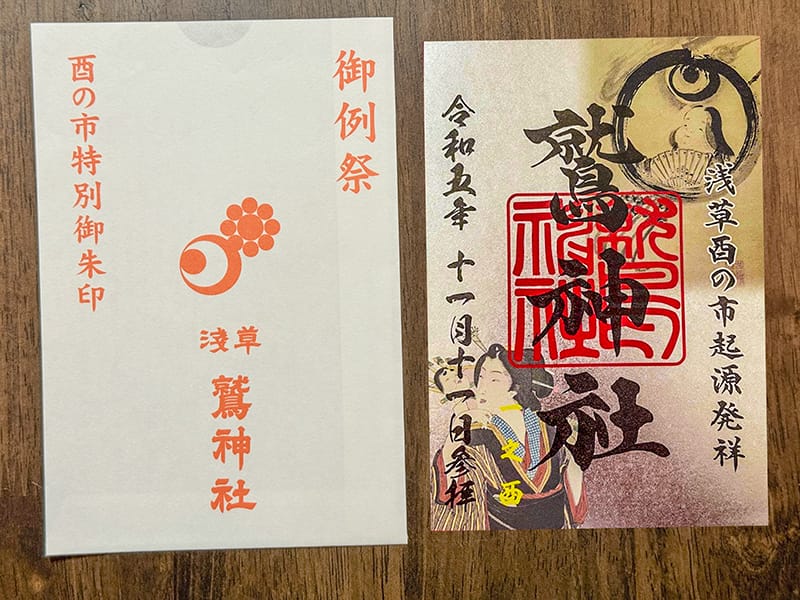 御例祭
酉の市特別御朱印
淺草
鷲神社
浅草酉の市起源発祥
鷲神社
令和五年 十一月十一日参拝